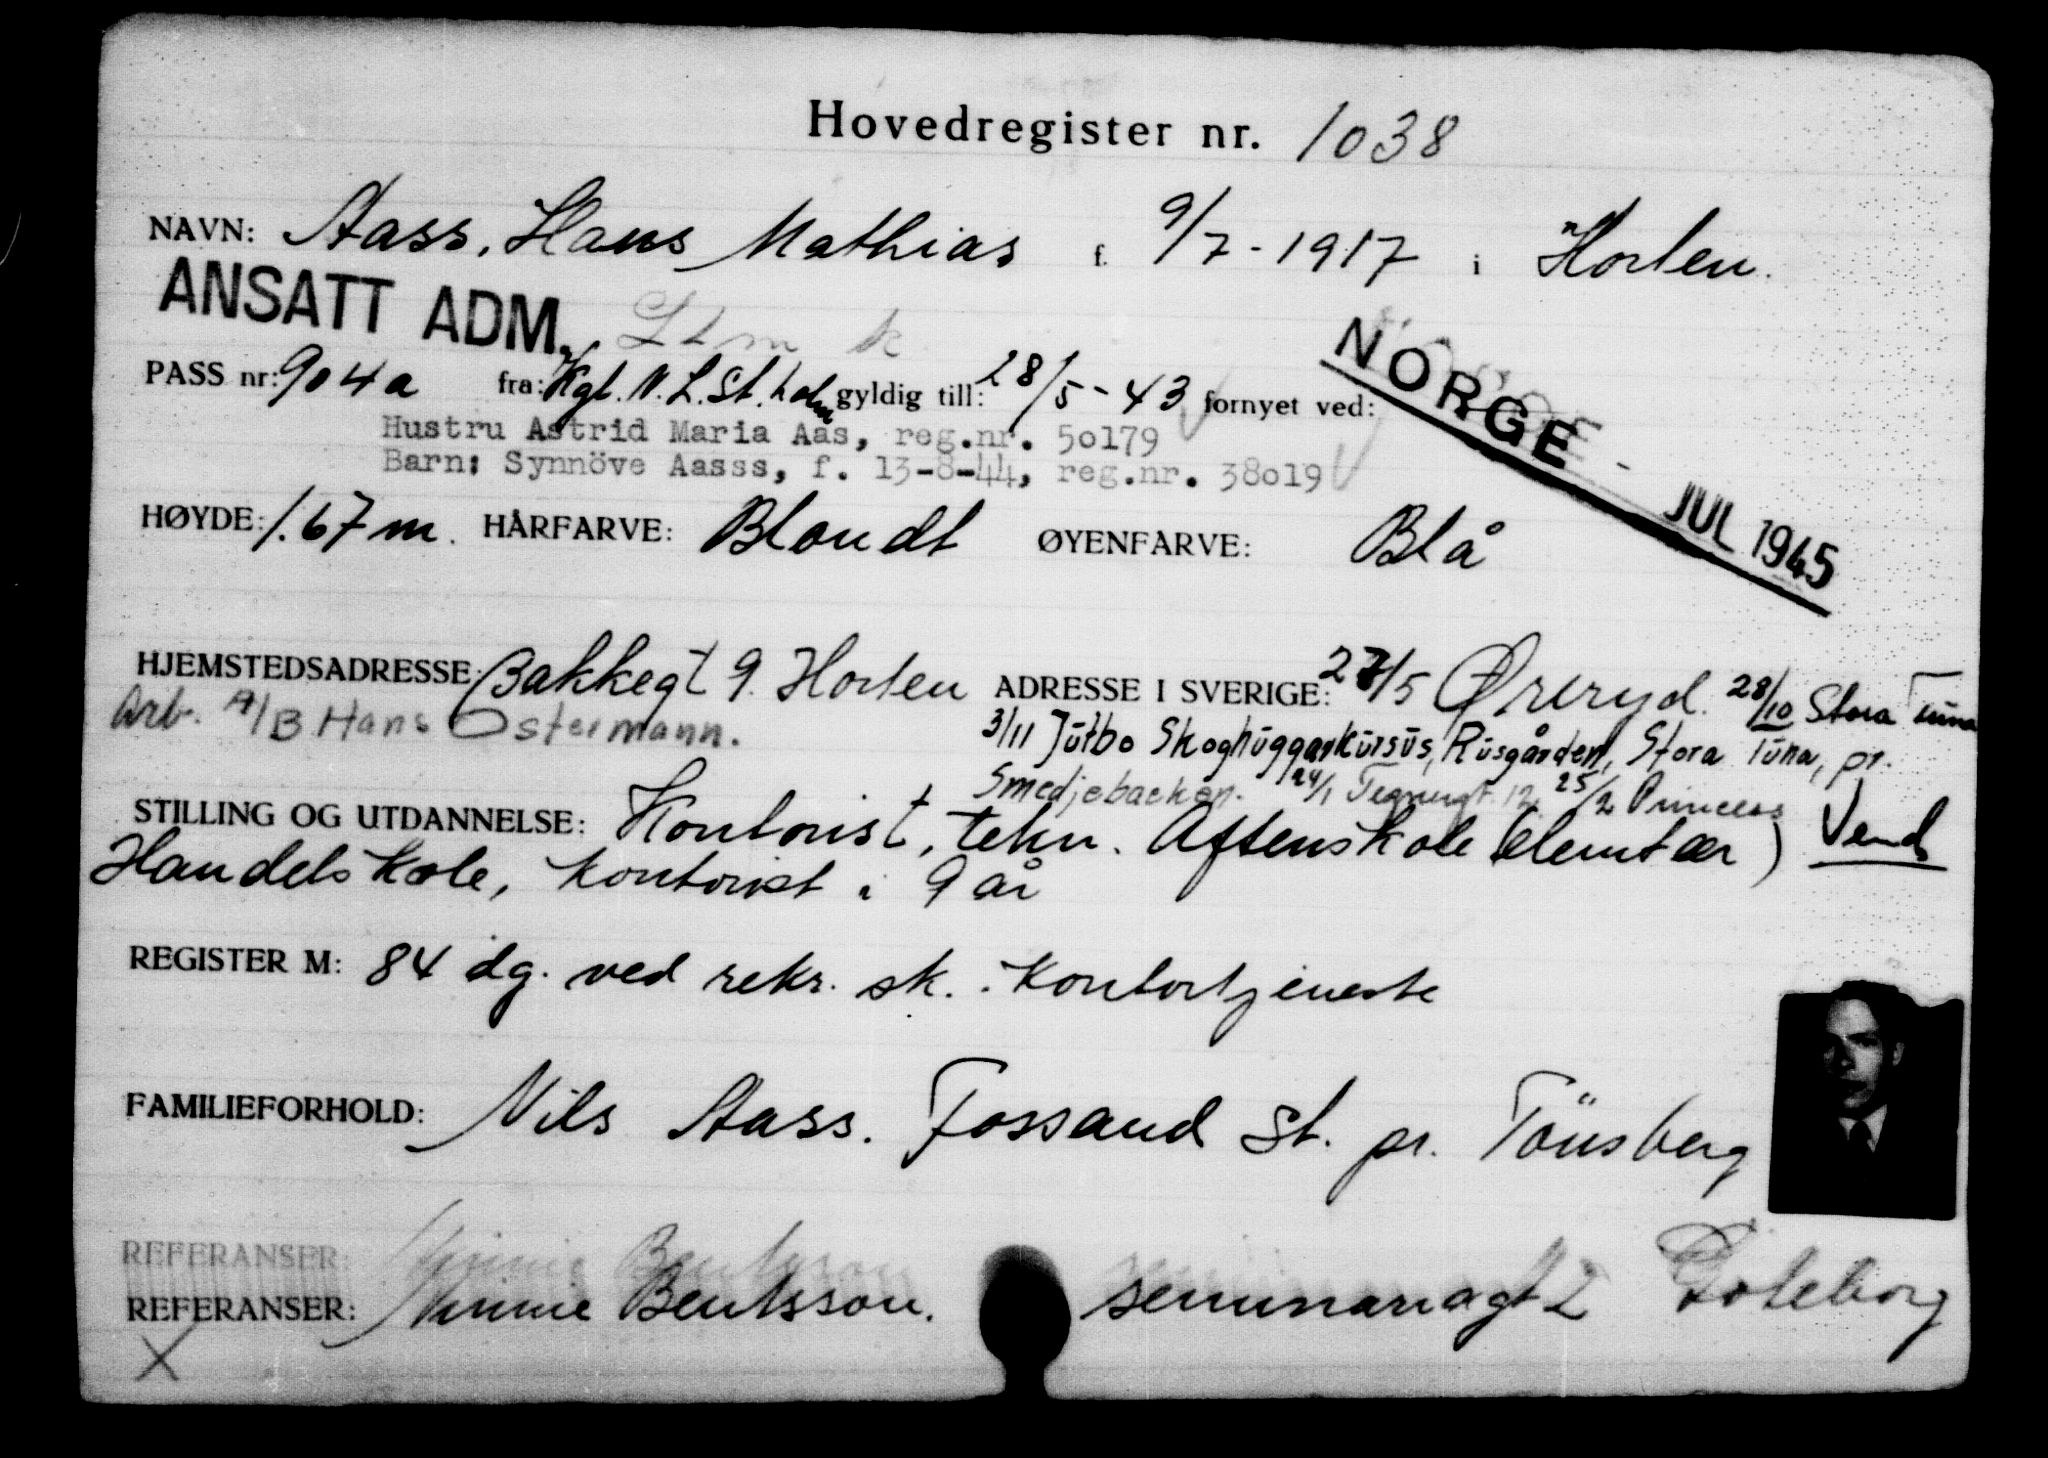 Hovedregister nr. 1038
NAVN: Aass, Hans Mathias f. 9/7-1917 i Horten.
ANSATT ADM.
NORGE - JUL 1945
PASS nr: 904a fra: Kgl. N. L. St.holm gyldig till: 28/5-43 fornyet ved:
Hustru Astrid Maria Aas, reg.nr. 50179
Barn: Synnöve Aasss, f. 13-8-44, reg.nr. 38019
HØYDE: 1.67 m. HÅRFARVE: Blondt ØYENFARVE: Blå
HJEMSTEDSADRESSE: Bakkegt 9. Horten ADRESSE I SVERIGE: 27/5 Øreryd. 28/10 Stora Tuna
Arb. A/B Hans Ostermann. 3/11 Jutbo Skoghuggarkursus, Rusgården, Stora Tuna, pr.
Smedjebacken. 24/1 Tegnergt. 12. 25/2 Princess
STILLING OG UTDANNELSE: Kontorist, tekn. Aftenskole (elemtær) Vend
Handelskole, kontorist i 9 år
REGISTER M: 84 dg. ved rekr. sk. . Kontortjeneste
FAMILIEFORHOLD: Nils Aass. Fossand St. pr. Tönsberg
REFERANSER:
REFERANSER: Minnie Bentsson. seminariagt 2 Göteborg
X